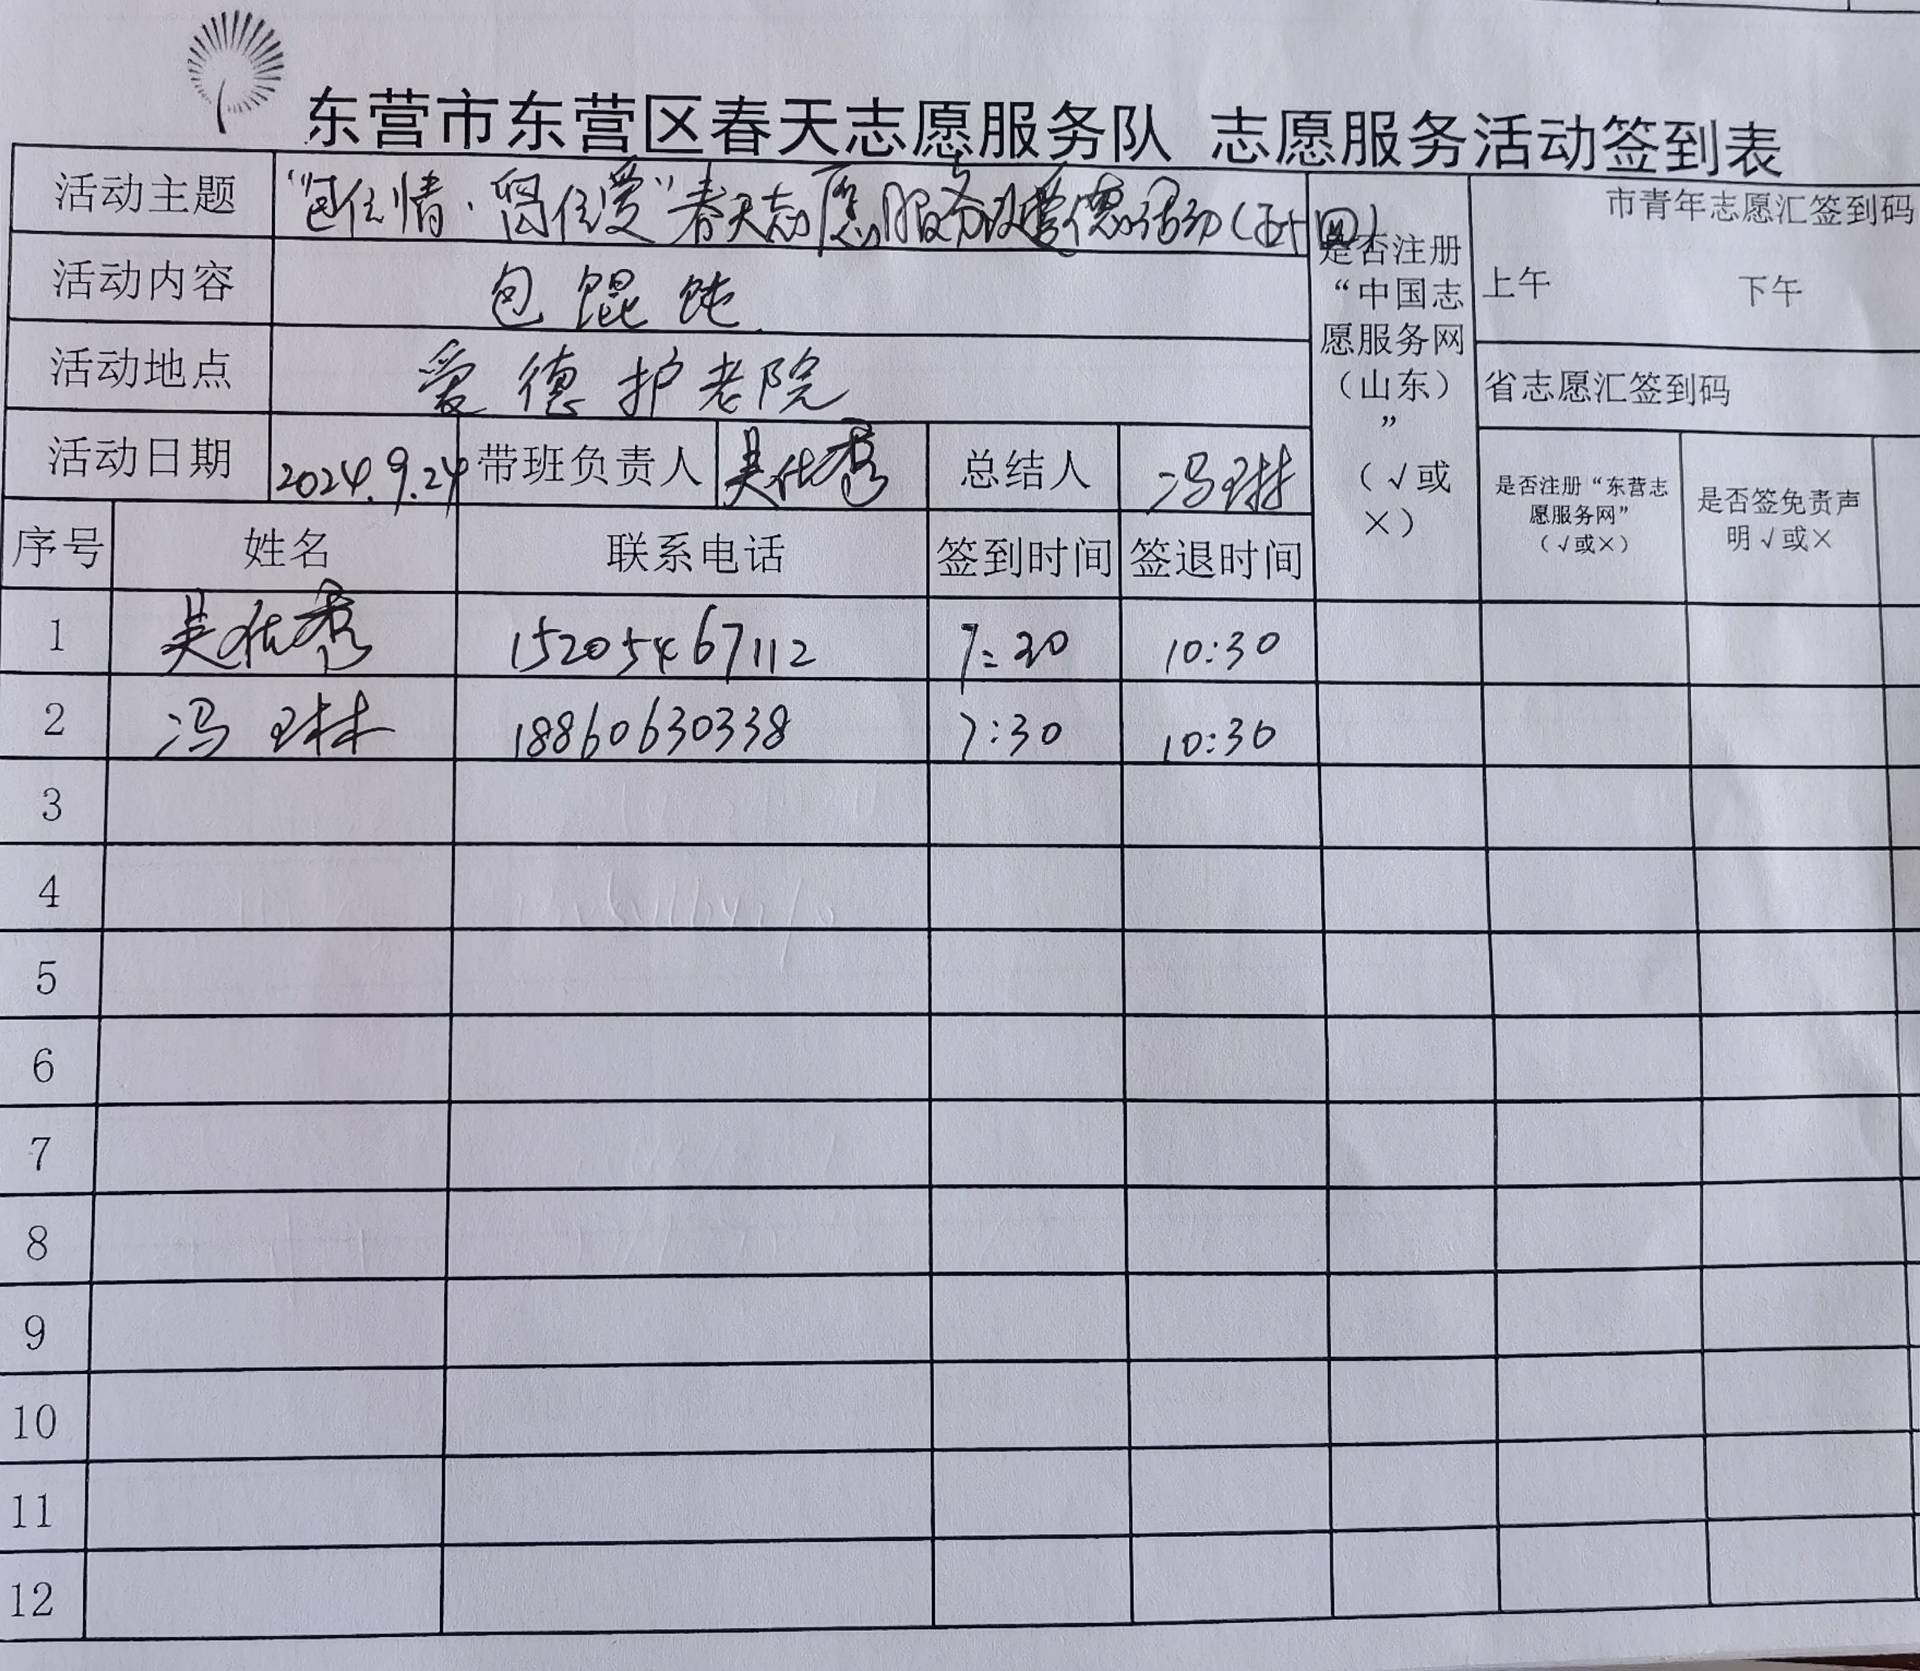 东营市东营区春天志愿服务队 志愿服务活动签到表
活动主题 “包住情·留住爱”春天志愿服务队爱德活动(五十四)
市青年志愿汇签到码
上午 下午
活动内容 包馄饨
活动地点 爱德护老院
是否注册
“中国志
愿服务网
（山东）
”
（√或
×）
省志愿汇签到码
活动日期 2024.9.24 带班负责人 吴秀 总结人 冯琳
是否注册“东营志
愿服务网”
（√或×）
是否签免责声
明√或×
序号 姓名 联系电话 签到时间 签退时间
1 吴秀 15205467112 7:30 10:30
2 冯琳 18860630338 7:30 10:30
3
4
5
6
7
8
9
10
11
12